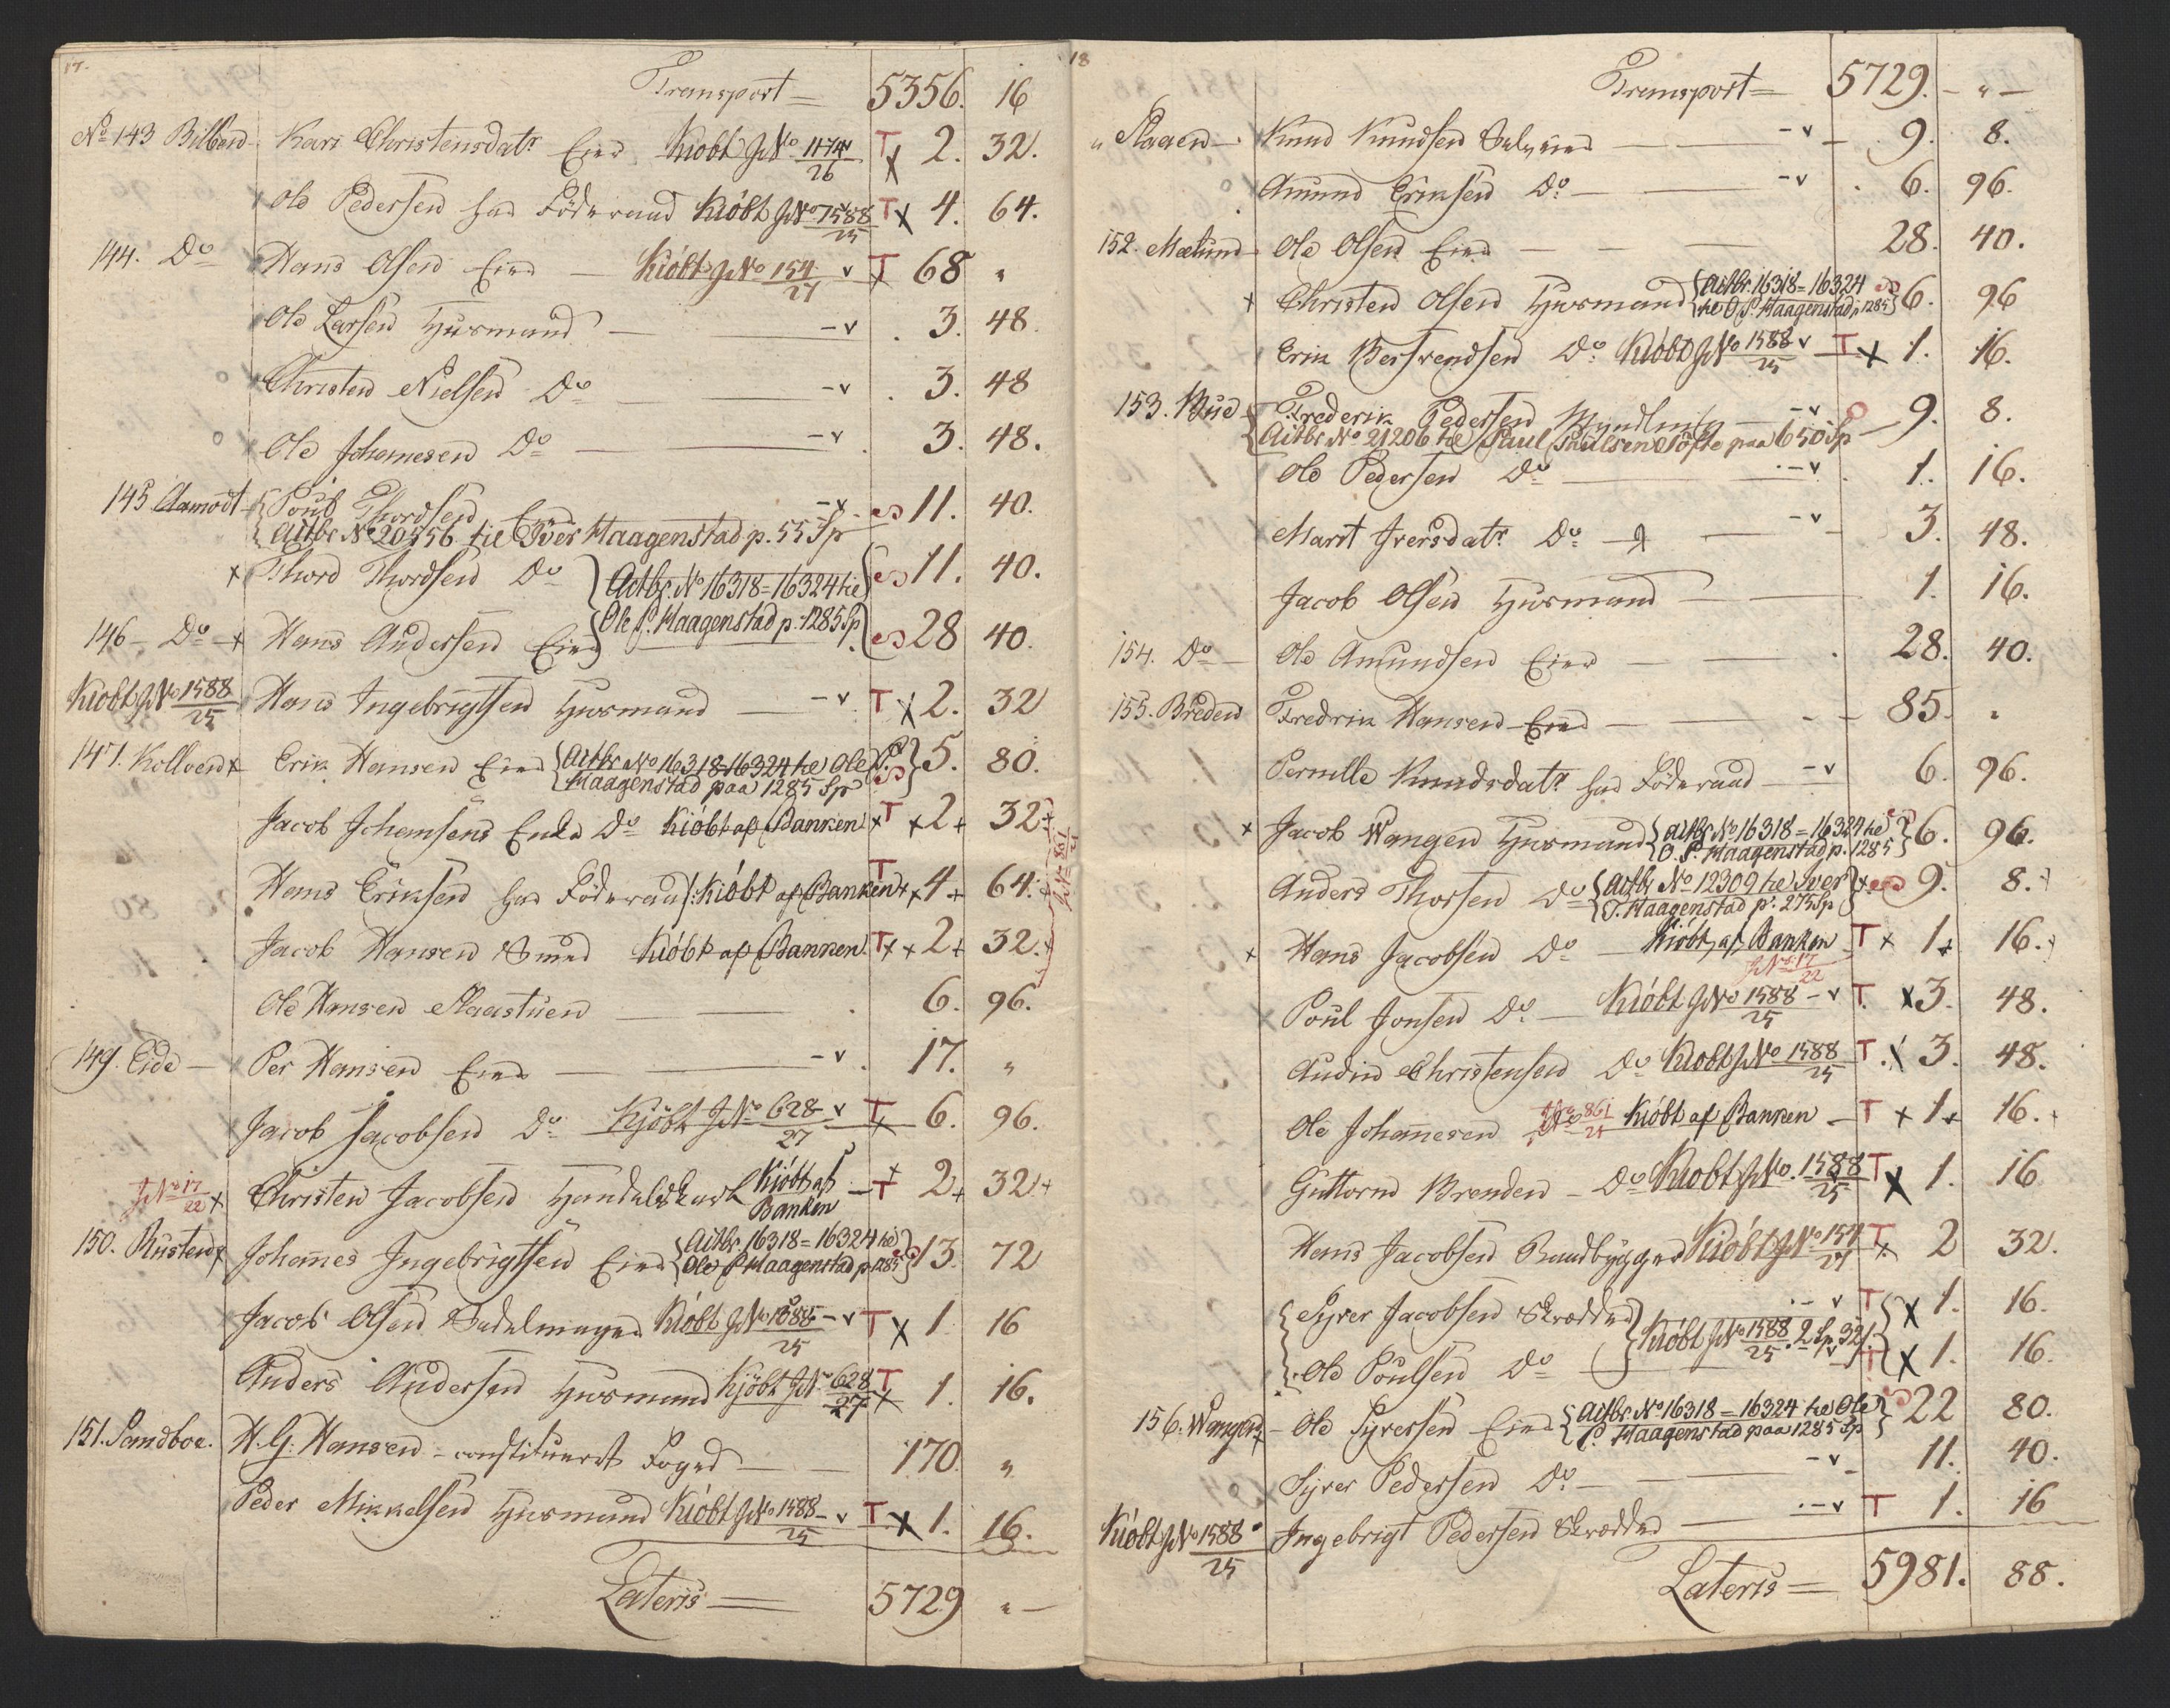 17.
Transport = 5356. 16
No 143 Bilben - Kari Christensdatr Eier Kiøbt JNo 1174/26 T x 2. 32.
Ole Pedersen har Föderaad Kiøbt JNo 1588/25 T x 4. 64.
144. Do Hans Olsen Eier — Kiøbt JNo 154/27 v T x 68 "
Ole Larsen Huusmand — - v . 3. 48.
Christen Nielsen Do — - v . 3. 48
Ole Johannesen Do — - v . 3. 48.
145 Aamodt - Poul Thordsen Eier - v 11. 40.
Actbr No 20356 til Iver Haagenstad p. 55 Sp
x Thord Thordsen Do Actbr. No 16318 = 16324 til 11. 40.
Ole P. Haagenstad p. 1285 Sp
146 - Do - x Hans Andersen Eier 28 40.
Kiøbt JNo 1588/25 Hans Ingebrigtsen Huusmand — - v T x 2. 32
147. Kolloen x Erik Hansen Eier Actbr No 16318-16324 til Ole P. 5. 80.
Haagenstad paa 1285 Sp
Jacob Johansens Enke Do Kiøbt af Banken x T x 2 + 32 +
Hans Eriksen har Föderaad Kiøbt af Banken T + x 4 + 64.
Jacob Hansen Smed Kiøbt af Banken T x + 2 + 32. +
Ole Hansen Slaastuen — . 6. 96.
149. Eide - Per Hansen Eier — - v . 17. "
Jacob Jacobsen Do Kjöbt JNo 628/27 v T x 6. 96.
JNo 17/22 x Christen Jacobsen Handelskarl Kiøbt af Banken - T x 2 + 32 +
150. Rusten x Johannes Ingebrigtsen Eier Actbr. 16318 = 16324 til 13. 72
Ole P. Haagenstad p. 1285
Jacob Olsen Sadelmager Kiøbt JNo 1588/25 - v T x 1 16
Anders Andersen Huusmand Kjöbt JNo 628/27 T x 1. 16.
151. Sandboe. H. G. Hansen - constitueret Foged — 170. "
Peder Mikkelsen Huusmand Kiøbt JNo 1588/25 - v T x 1. 16.
Lateris = 5729 " -
18
Transport = 5729. - " -
" Slaaen - Knud Knudsen Selveier — - v - 9. 8.
Amund Eriksen Do — - v . 6. 96.
152. Mælum - Ole Olsen Eier — 28. 40.
x Christen Olsen Huusmand Actbr. 16318 = 16324 6. 96
til O. P. Haagenstad p. 1285
Erik Bersvendsen Do Kiøbt JNo 1588/25 v T x 1. 16.
153. Bue - Frederik Pedersen Myndling - v 9. 8.
Actbr No 21206 til Paul Paulsen Tofte paa 650 Sp
Ole Pedersen Do — - v . 1. 16.
Marit Iversdatr Do — - v 3. 48.
Jacob Olsen Huusmand — 1. 16.
154. Do - Ole Amundsen Eier — 28. 40.
155. Breden Fredrik Hansen Eier — 85. "
Pernille Knudsdatr har Föderaad - v 6. 96.
x Jacob Wangen Huusmand Actbr No 16318 = 16324 til 6. 96.
O. P. Haagenstad p. 1285
Anders Thorsen Do Actbr No 12309 til Iver 9. 8. +
T. Haagenstad p. 275 Sp
x Hans Jacobsen Do — Kiøbt af Banken T x 1 + 16. +
JNo 17/22
Poul Jonsen Do — Kiøbt JNo 1588/25 - v T. x 3. 48.
Audin Christensen Do Kiøbt JNo 1588/25 T. x 3. 48.
Ole Johannesen JNo 861/21 Kiøbt af Banken - T x 1 + 16. +
Guttorm Brenden - Do Kiøbt JNo. 1588/25 T x 1. 16
Hans Jacobsen Baadbygger Kiøbt JNo 154/27 T x 2 32.
Syver Jacobsen Skrædder . - v T x 1. 16.
Kiøbt JNo 1588/25 . 2 Sp 32
Ole Poulsen Do T x 1. 16.
156. Wangen x - Ole Syversen Eier Actbr No 16318 = 16324 til Ole 22 80.
P. Haagenstad paa 1285 Sp
Syver Pedersen Do — - v - 11. 40.
Kiøbt JNo 1588/25 Ingebrigt Pedersen Skrædder — . - v T 1. 16
Lateris = 5981. 88.